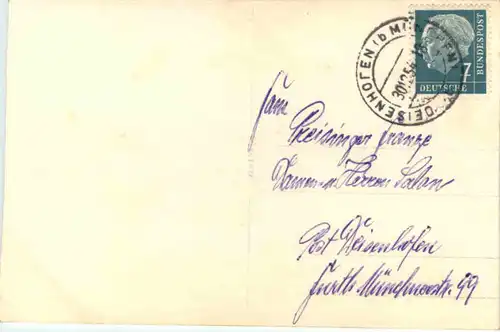 DEISENHOFEN (b MÜNCHEN)
30.12.56
7
DEUTSCHE BUNDESPOST
Fam
Preisinger Franze
Damen- u. Herren Salon
Post Deisenhofen
Furth Münchnerstr. 99